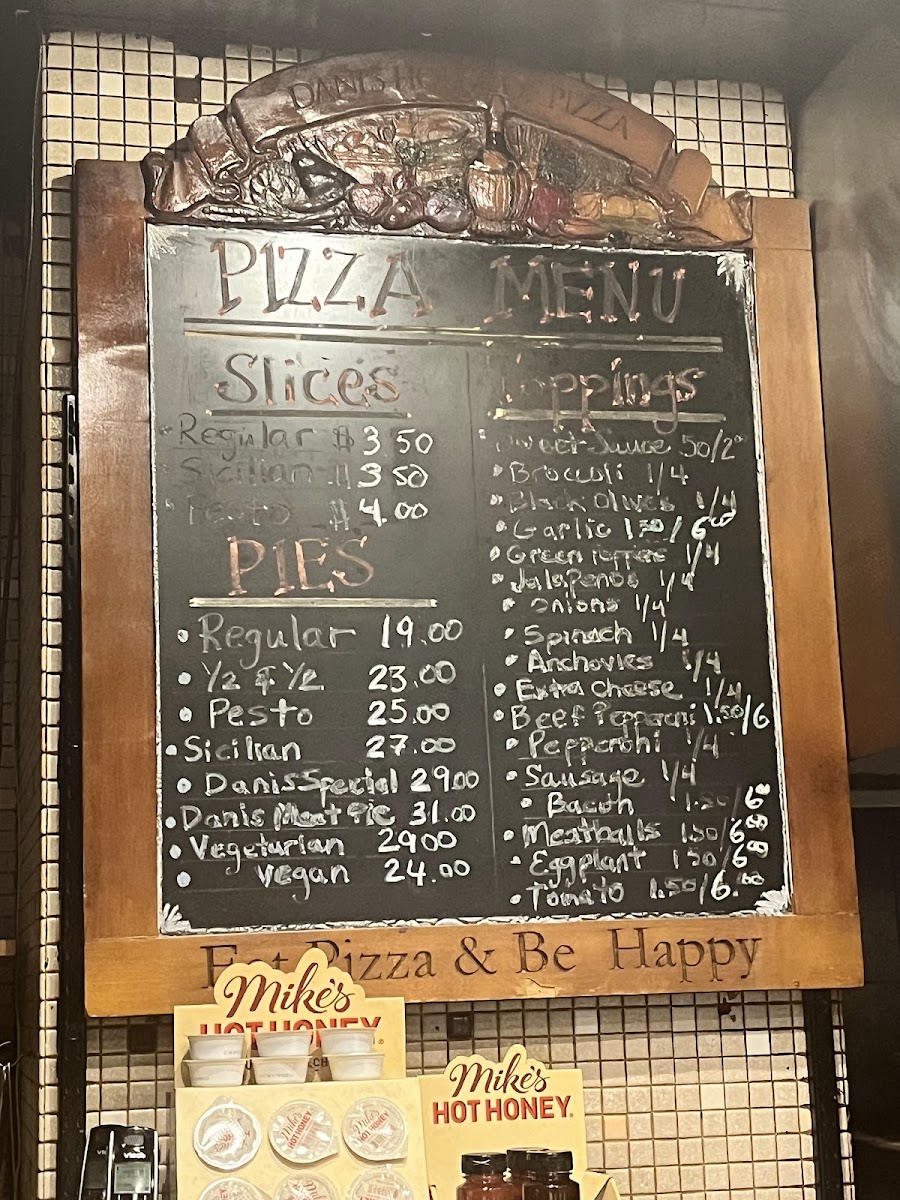 DANIS HOUSE OF PIZZA
PIZZA MENU
Slices
Regular $ 3 50
Sicilian $ 3 50
Pesto $ 4.00
PIES
Regular 19.00
1/2 & 1/2 23.00
Pesto 25.00
Sicilian 27.00
Danis Special 29.00
Danis Meat Pie 31.00
Vegeturian 29 00
vegan 24.00
Toppings
Sauce 50/2
Broccoli 1/4
Black Olives 1/4
Garlic 1 50 / 6 00
Green Peppers 1/4
Jalapenos 1/4
Onions 1/4
Spinach 1/4
Anchovies 1/4
Extra Cheese 1/4
Beef Pepperoni 1.50/6
Pepperoni 1/4
Sausage 1/4
Bacon 1.50/6 00
Meatballs 1.50/6 00
Eggplant 1 50/6 00
Tomato 1.50/6.00
Eat Pizza & Be Happy
Mike's
HOT HONEY
Mike's
HOT HONEY
Mike's
HOT HONEY